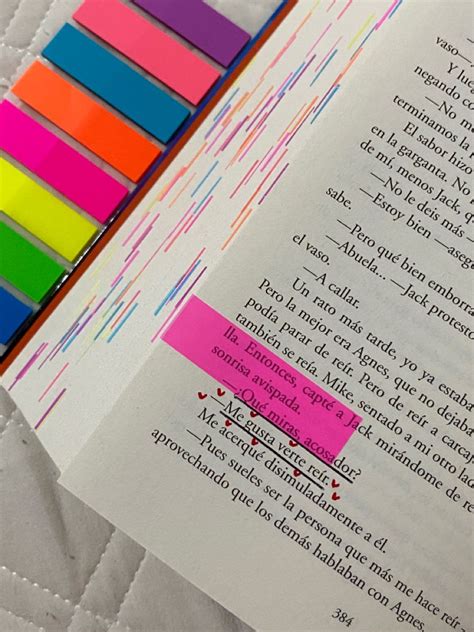 vaso—
Y luc
negando c
—No m
terminamos la
El sabor hizo
en la garganta. No
de mí, menos Jack, p
—No le deis más
—Estoy bien —asegu
sabe.
—Pero qué bien emborra
—Abuela... —Jack protestó
el vaso.
—A callar.
Un rato más tarde, yo ya estaba
Pero la mejor era Agnes, que no dejaba
podía parar de reír. Pero de reír a carcaj
también se reía. Mike, sentado a mi otro lad
lla. Entonces, capté a Jack mirándome de re
sonrisa avispada.
—¿Qué miras, acosador?
—Me gusta verte reír.
Me acerqué disimuladamente a él.
—Pues sueles ser la persona que más me hace reír —
aprovechando que los demás hablaban con Agnes.
384